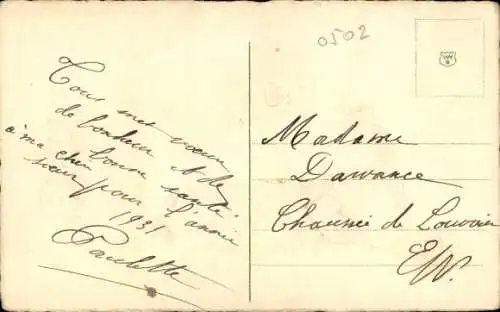 Tous mes vœux
de bonheur et de
bonne santé
à ma chère
sœur pour l'année
1931
Paulette
0502
Madame
Dawance
Chaussée de Louvain
E/V.